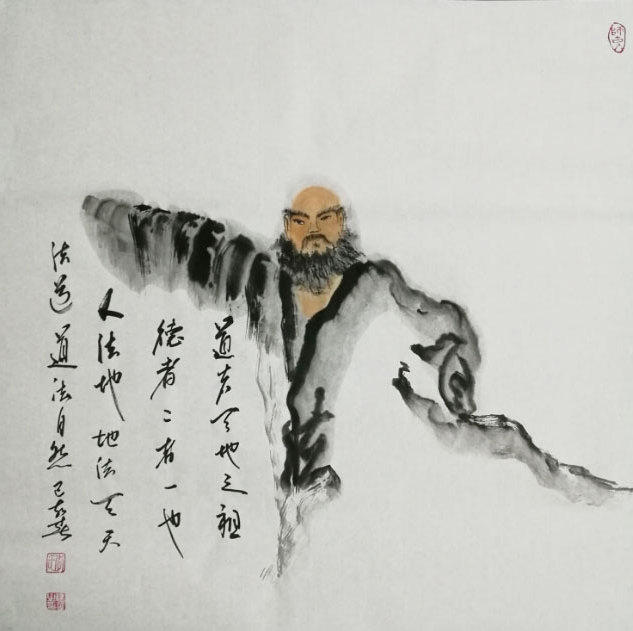 道者天地之祖
德者二者一也
人法地地法天天
法道道法自然己亥